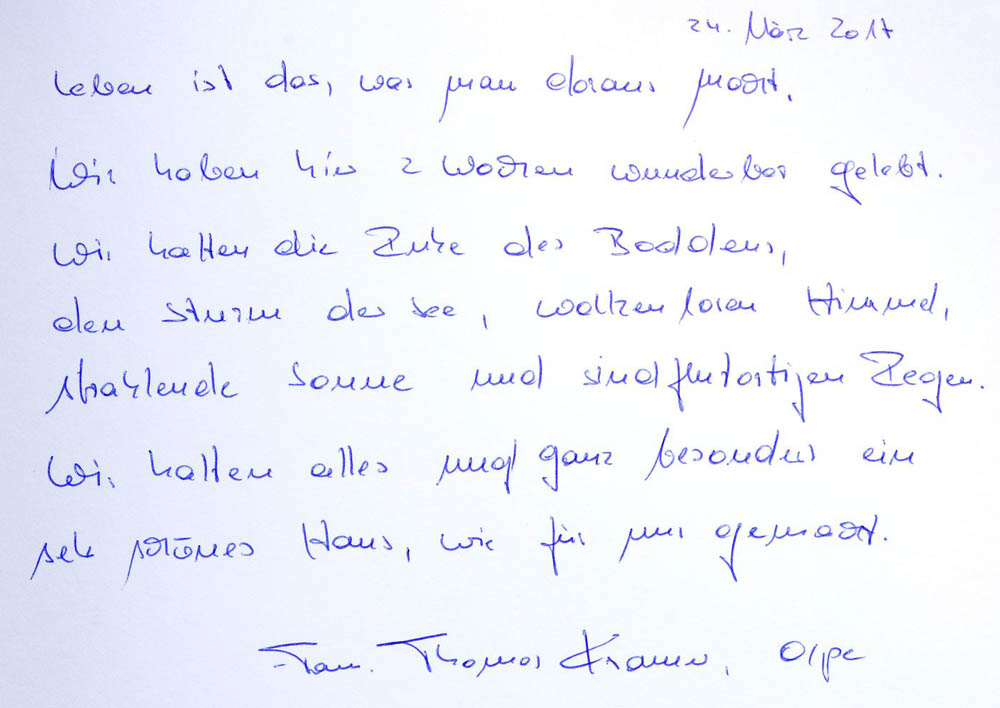 24. März 2017
Leben ist das, was man daraus macht.
Wir haben hier 2 Wochen wunderbar gelebt.
Wir hatten die Ruhe des Boddens,
den Sturm der See, wolkenlosen Himmel,
strahlende Sonne und sindflutartigen Regen.
Wir hatten alles und ganz besonders ein
sehr schönes Haus, wie für uns gemacht.
Fam. Thomas Kramer, Olpe